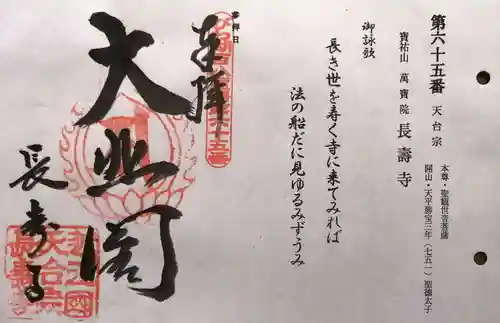 第六十五番 天台宗
本尊・聖観世音菩薩
開山・天平勝宝三年(七五一) 聖徳太子
寶祐山 萬寶院 長壽寺
御詠歌
長き世を寿く寺に来てみれば
法の船だに見ゆるみずうみ
参拝日
奉拝
大悲閣
長寿寺